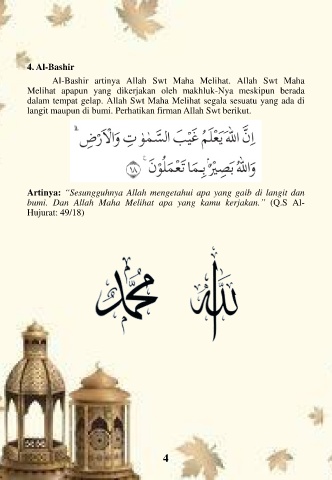 4. Al-Bashir
Al-Bashir artinya Allah Swt Maha Melihat. Allah Swt Maha
Melihat apapun yang dikerjakan oleh makhluk-Nya meskipun berada
dalam tempat gelap. Allah Swt Maha Melihat segala sesuatu yang ada di
langit maupun di bumi. Perhatikan firman Allah Swt berikut.
اِنَّ اللّٰهَ يَعْلَمُ غَيْبَ السَّمٰوٰتِ وَالْاَرْضِۗ
وَاللّٰهُ بَصِيْرٌۢ بِمَا تَعْمَلُوْنَ ࣖ ١٨
Artinya: “Sesungguhnya Allah mengetahui apa yang gaib di langit dan
bumi. Dan Allah Maha Melihat apa yang kamu kerjakan.” (Q.S Al-
Hujurat: 49/18)
محمد الله
4